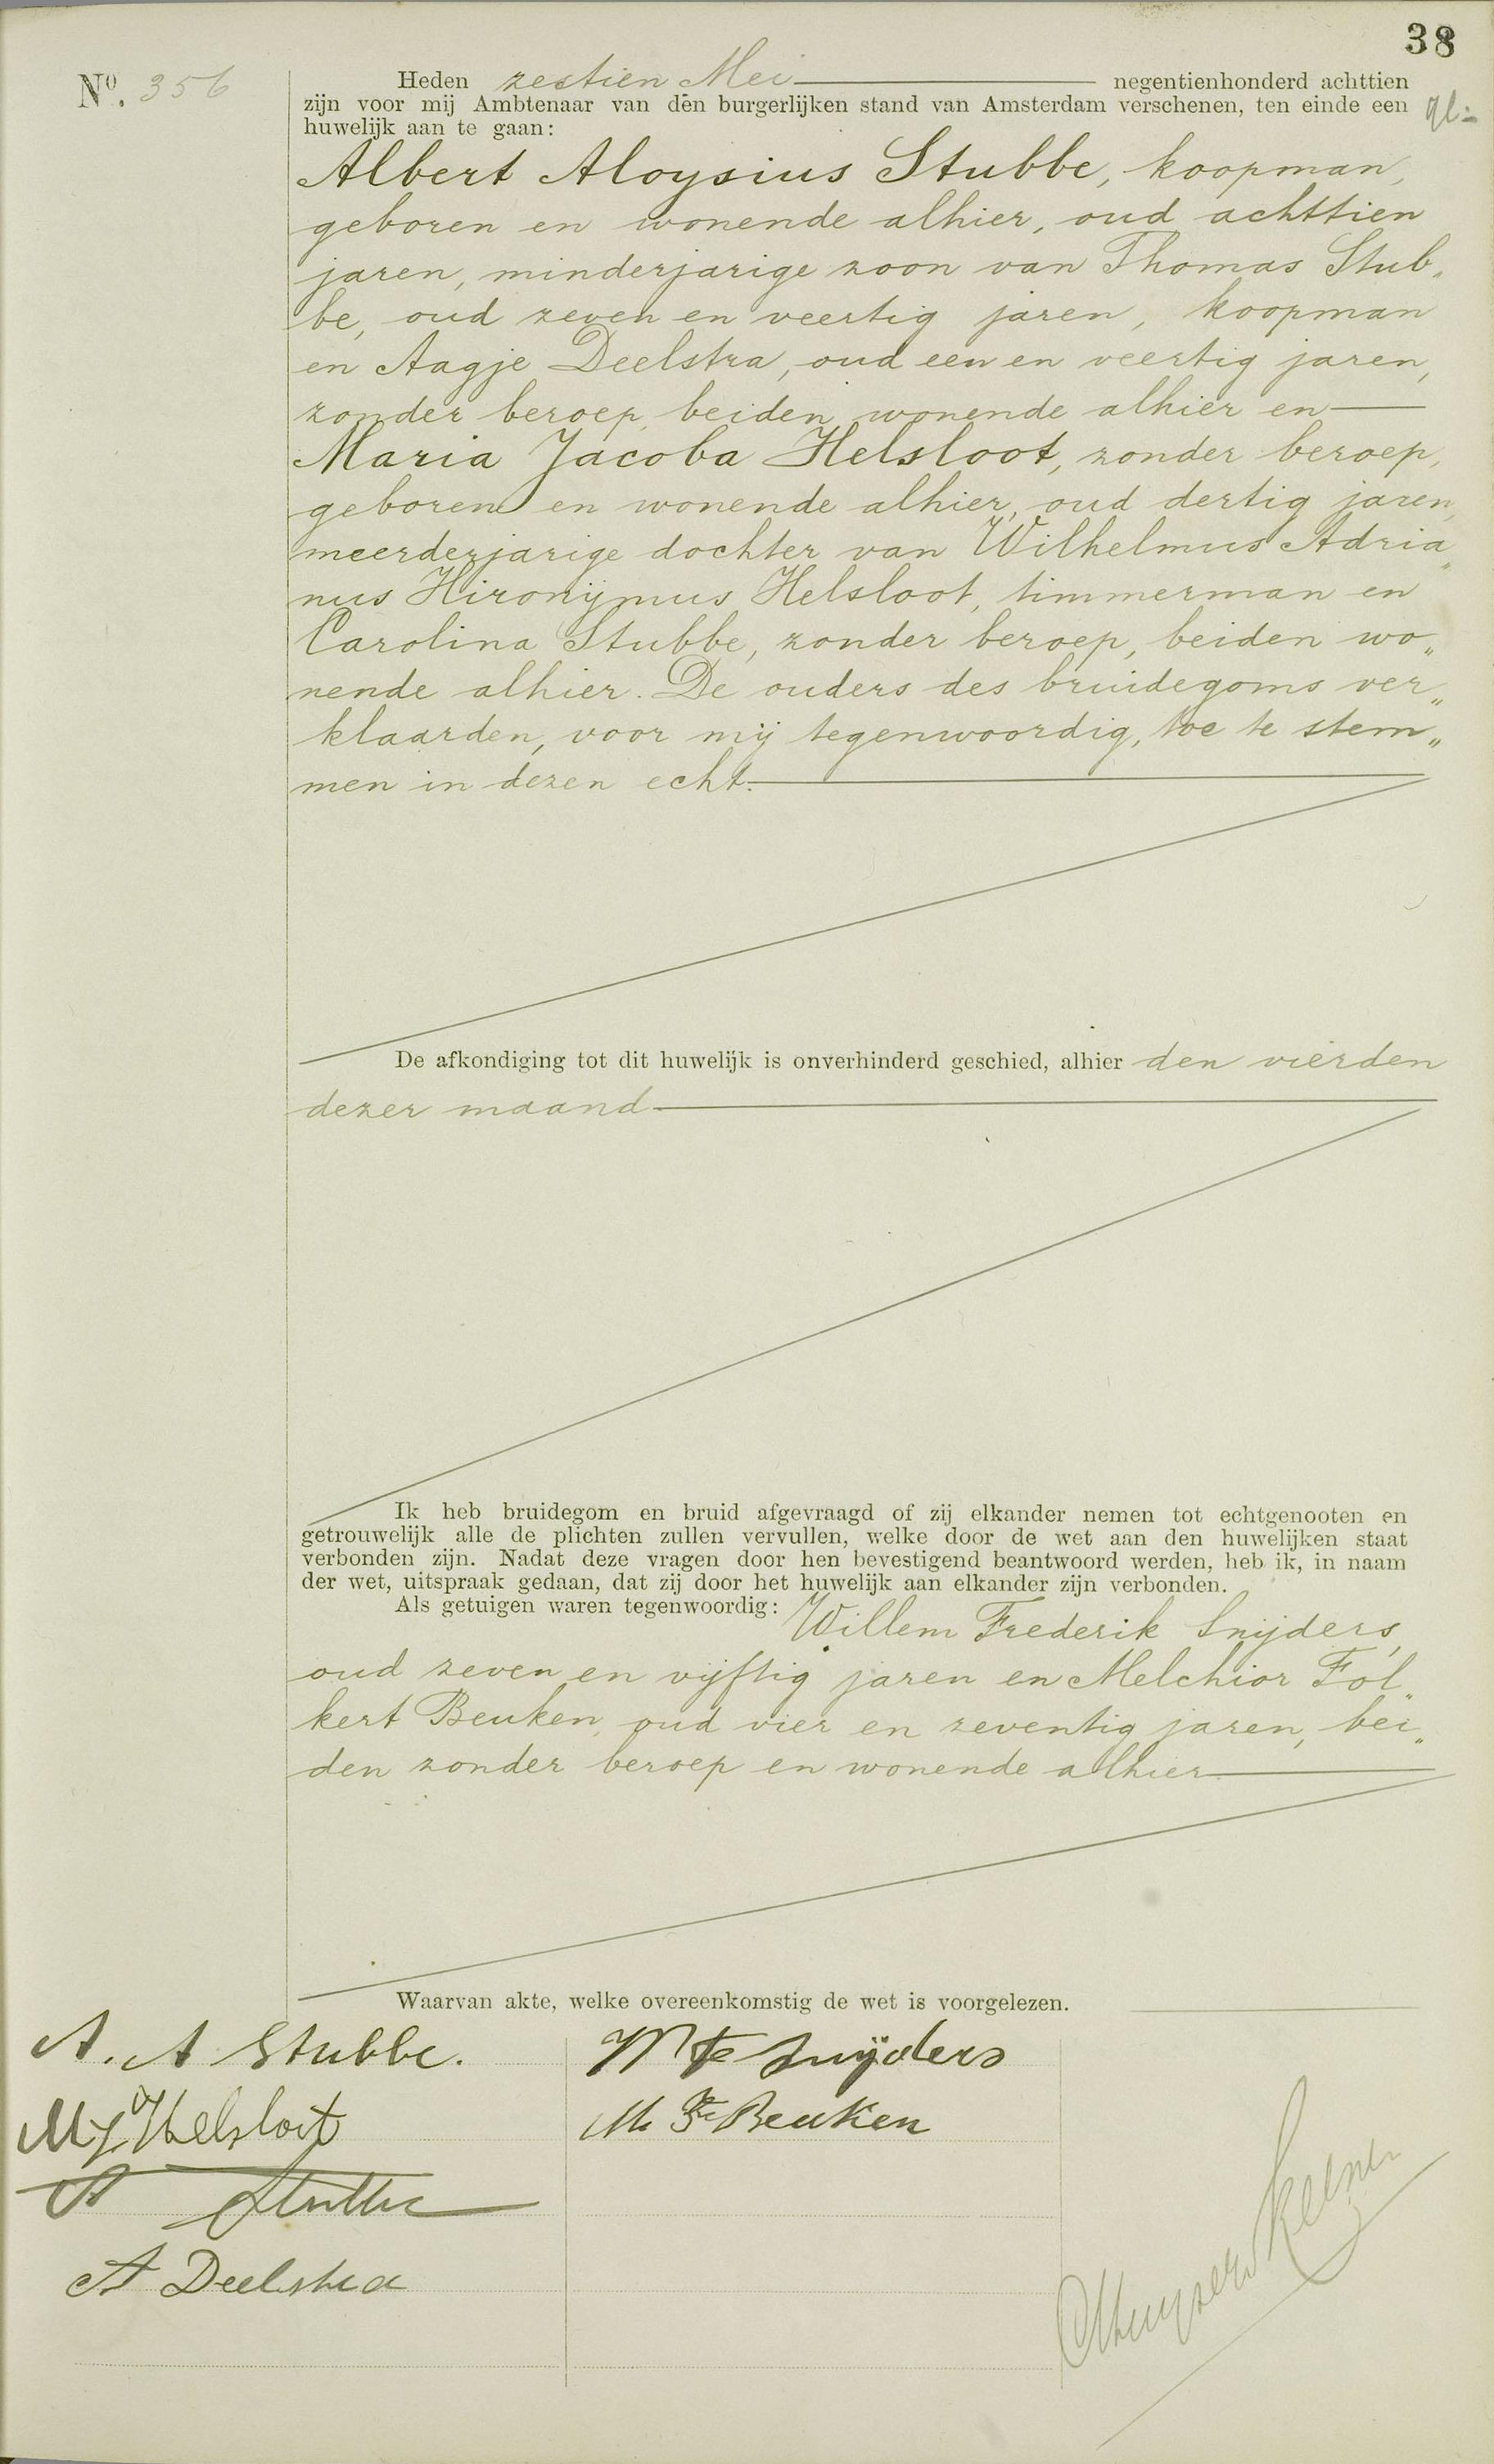 38
Nº. 356
Heden zestien Mei negentienhonderd achttien
zijn voor mij Ambtenaar van den burgerlijken stand van Amsterdam verschenen, ten einde een
huwelijk aan te gaan:
Albert Aloysius Stubbe, koopman,
geboren en wonende alhier, oud achttien
jaren, minderjarige zoon van Thomas Stub„
be, oud zeven en veertig jaren, koopman
en Aagje Deelstra, oud een en veertig jaren,
zonder beroep, beiden wonende alhier en
Maria Jacoba Helsloot, zonder beroep,
geboren en wonende alhier, oud dertig jaren,
meerderjarige dochter van Wilhelmus Adria„
nus Hironijmus Helsloot, timmerman en
Carolina Stubbe, zonder beroep, beiden wo„
nende alhier. De ouders des bruidegoms ver„
klaarden, voor mij tegenwoordig, toe te stem„
men in dezen echt.
De afkondiging tot dit huwelijk is onverhinderd geschied, alhier den vierden
dezer maand
Ik heb bruidegom en bruid afgevraagd of zij elkander nemen tot echtgenooten en
getrouwelijk alle de plichten zullen vervullen, welke door de wet aan den huwelijken staat
verbonden zijn. Nadat deze vragen door hen bevestigend beantwoord werden, heb ik, in naam
der wet, uitspraak gedaan, dat zij door het huwelijk aan elkander zijn verbonden.
Als getuigen waren tegenwoordig: Willem Frederik Snijders,
oud zeven en vijftig jaren en Melchior Fol„
kert Beuken, oud vier en zeventig jaren, bei„
den zonder beroep en wonende alhier.
Waarvan akte, welke overeenkomstig de wet is voorgelezen.
A. A Stubbe.
M J Helsloot
Stubbe
A Deelstra
Snijders
M F Beuken